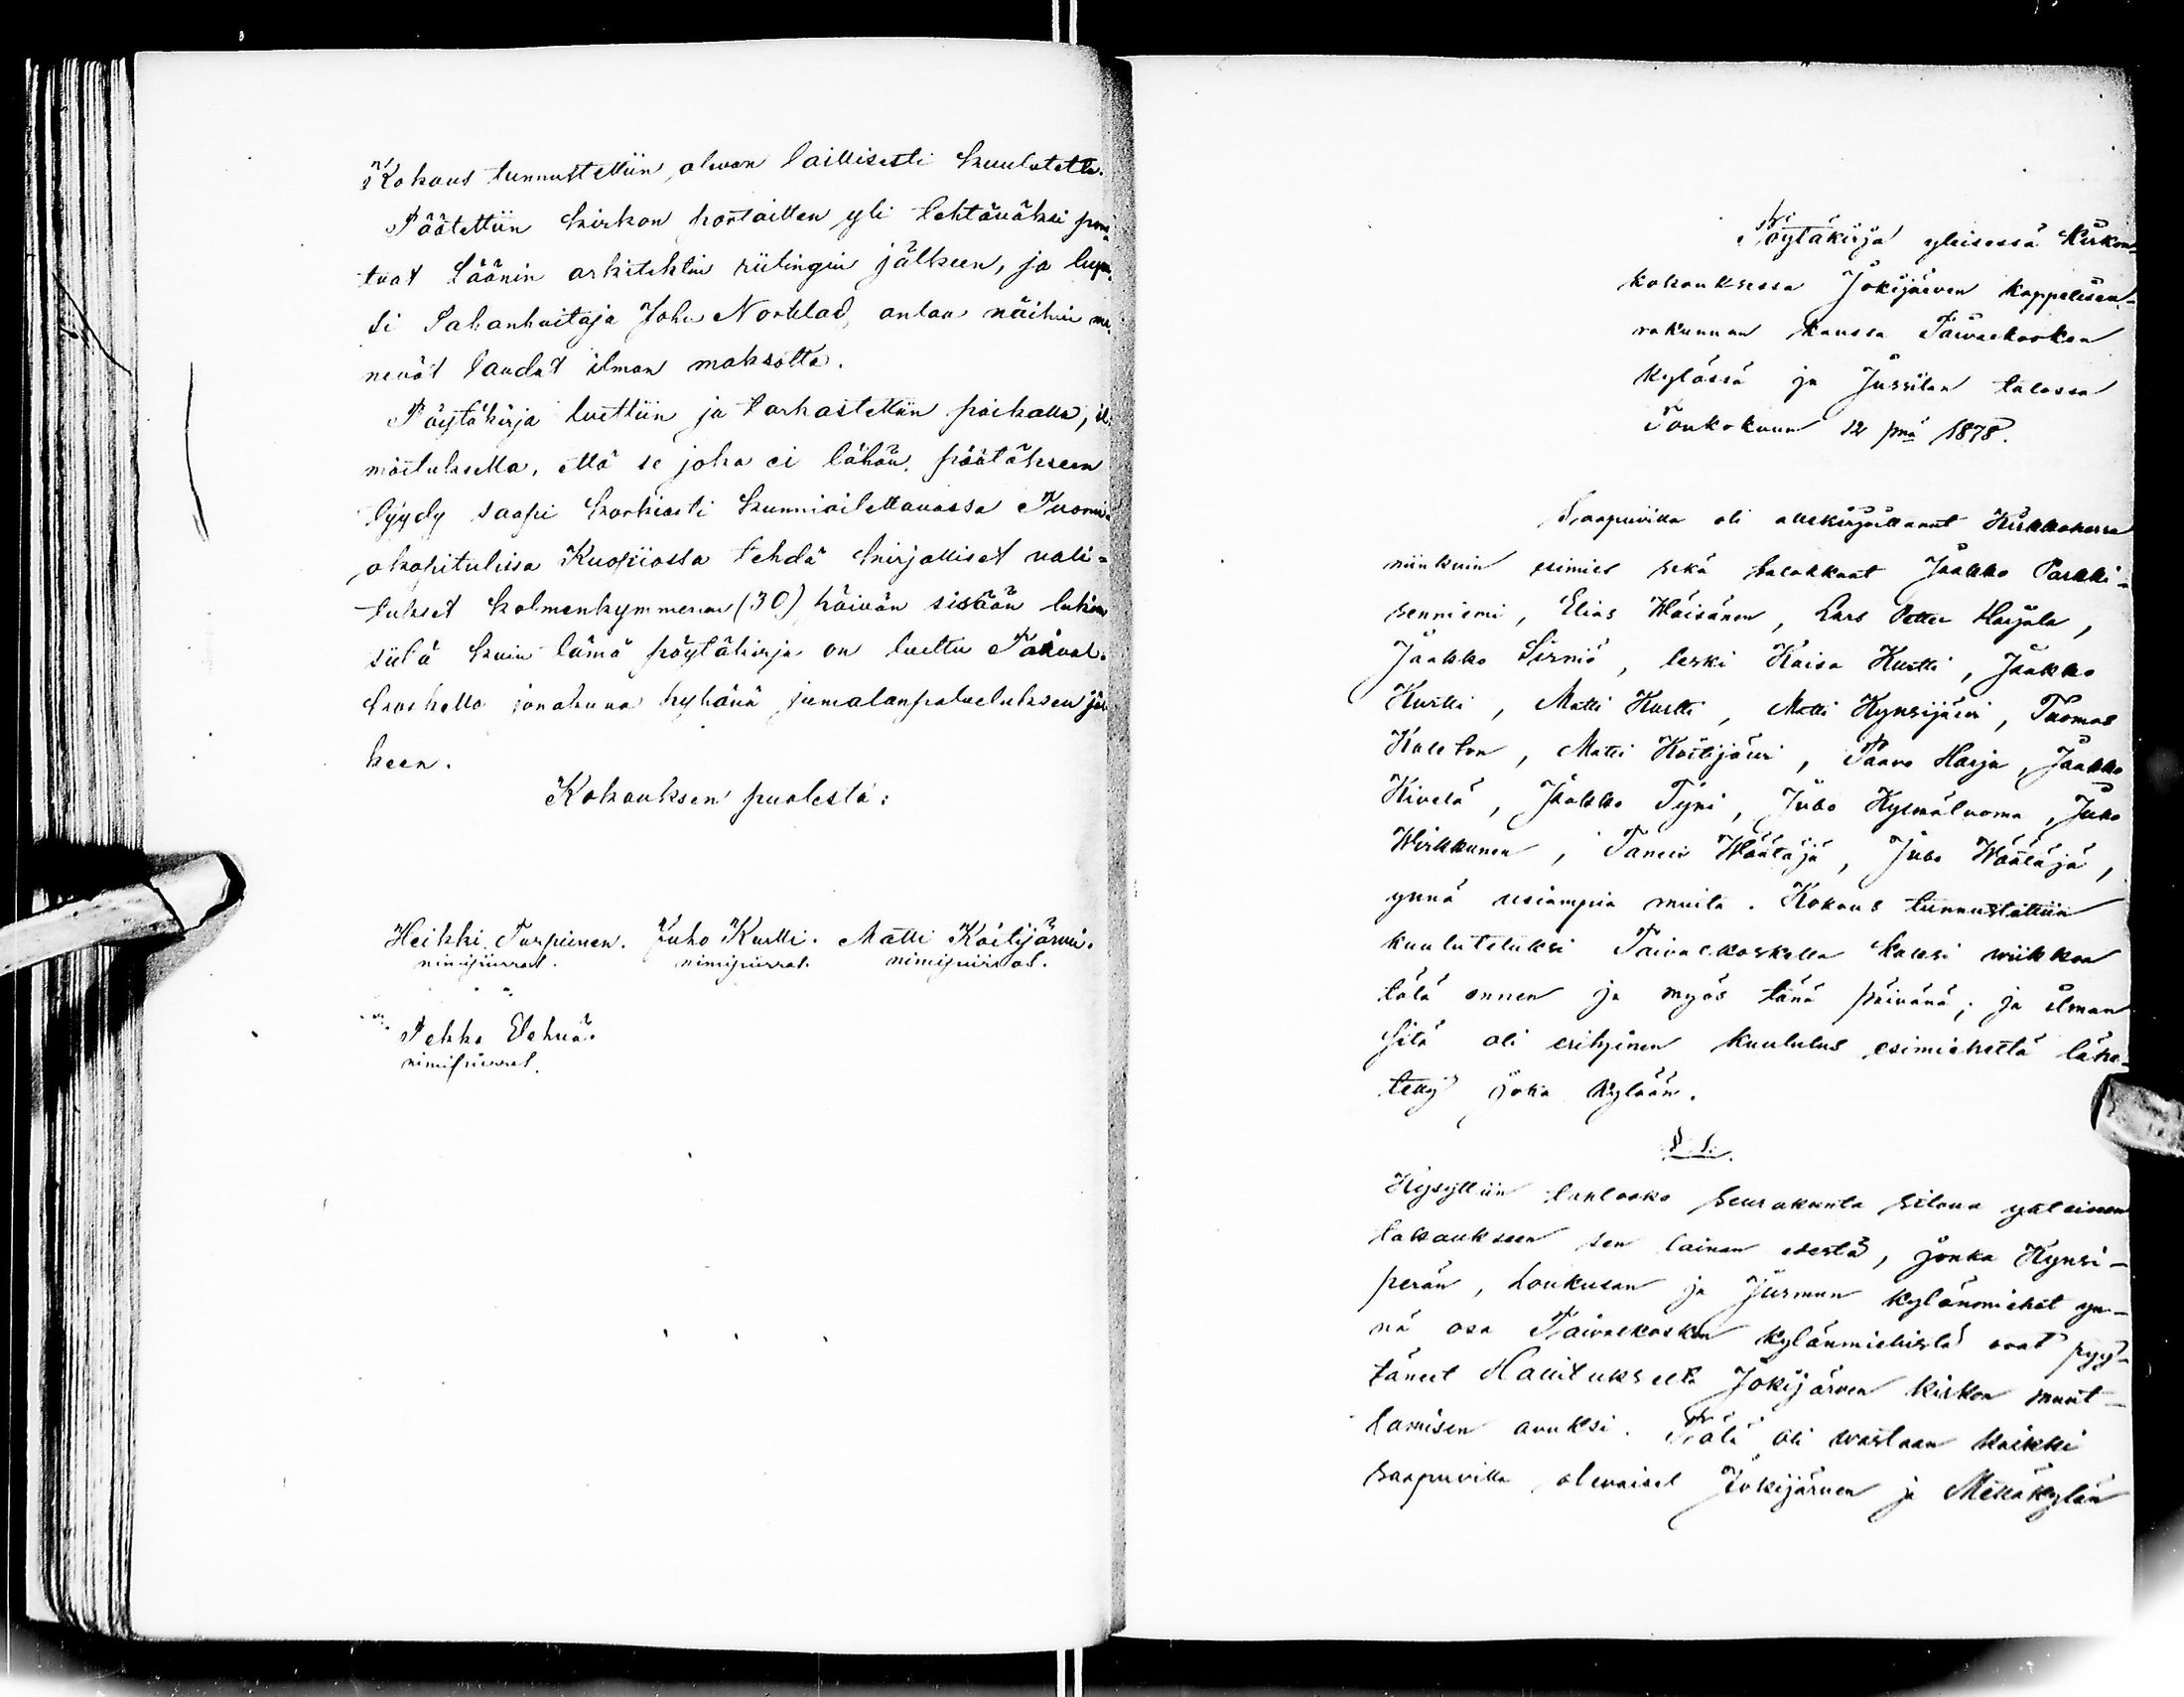 Kokous tunnustettiin olevan laillisesti kuulutettu.
Päätettiin kirkon portaitten yli tehtäväksi por-
tuat Läänin arkitektin riitingin jälkeen, ja lupa-
si Pakanhoitaja Johu Norblad, antaa näihin me-
nevät laudat ilman maksotta.
Pöytäkirja luettiin ja tarkastettiin paikalla, il-
moituksella, että se joka ei tähän päätökseen
tyydy saapi korkiasti kunnioitettavassa Tuomi-
okapitulissa Kuopiossa tehdä kirjalliset vali-
tukset kolmenkymmenen (30) päivän sisään lukien
siitä kuin tämä pöytäkirja on luettu Taival-
koskella jonakuna pyhänä jumalanpalveluksen jäl-
keen.
Kokouksen puolesta:
Heikki Turpeinen. Juho Kurtti. Matti Koitijärvi.
nimipiirrot. nimipiirrot. nimipiirrot.
Pekka
nimipiirrot.
Pöytäkirja yleisessä Kirkon-
kokouksessa Jokijärven kappeliseu-
rakunnan kanssa Taivalkosken
kylässä ja Jussilan talossa
Toukokuun 12 pnä 1878.
Saapuvilla oli allekirjoittanut Kirkkoherra
niinkuin esimies sekä talokkaat Jaakko Parkki-
senniemi, Elias Wäisänen, Lars Petter Harjula,
Jaakko Sirniö, leski Kaisa Kurtti, Jaakko
Kurtti, Matti Kurtti, Matti Kynsijärvi, Tuomas
Matti Koitijärvi, Paavo Harju, Jaakko
Kivelä, Jaakko Tyni, Juho Kylmäluoma, Juho
Wirkkunen, Taneli Wäätäjä, Juho Wäätäjä,
ynnä usiampia muita. Kokous tunnustettiin
kuulutetuksi Taivalkoskella kaksi wiikkoa
tätä ennen ja myös tänä päivänä; ja ilman
sitä oli erityinen kuulutus esimieheltä lähe-
tetty joka kylään.
§ 1.
Kysyttiin tahtooko seurakunta sitoua yhteiseen
takaukseen sen lainan edestä, jonka Kynsi-
perän, Loukusan ja Jurmun kylänmiehet yn-
nä osa Taivalkosken kylänmiehistä ovat pyy-
täneet Hallitukselta Jokijärven kirkon muut-
tamisen avuksi. Tätä oli wastaan kaikki
saapuvilla olevaiset Jokijärven ja Metsäkylän